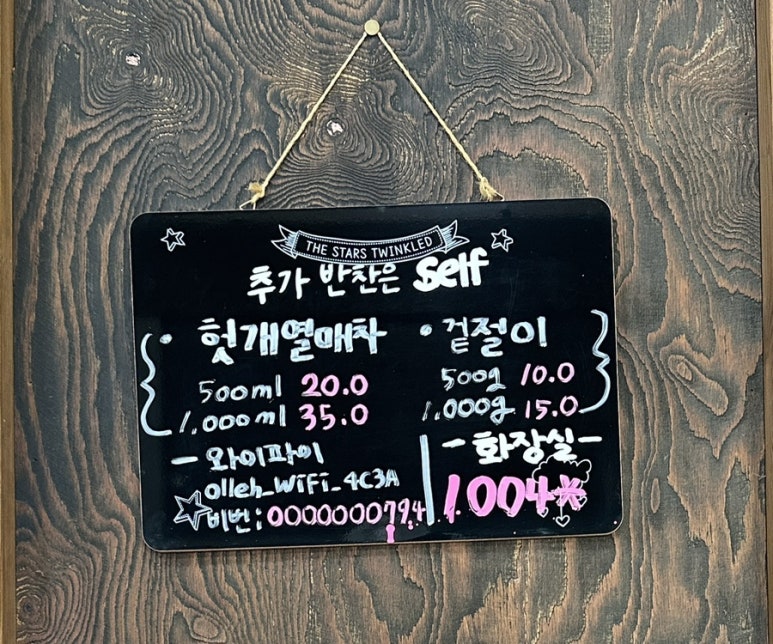 THE STARS TWINKLED
추가 반찬은 self
• 헛개열매차
500ml 20.0
1.000ml 35.0
• 겉절이
500g 10.0
1.000g 15.0
- 와이파이
olleh_WiFi_4C3A
비번:0000000794
- 화장실 -
1004*